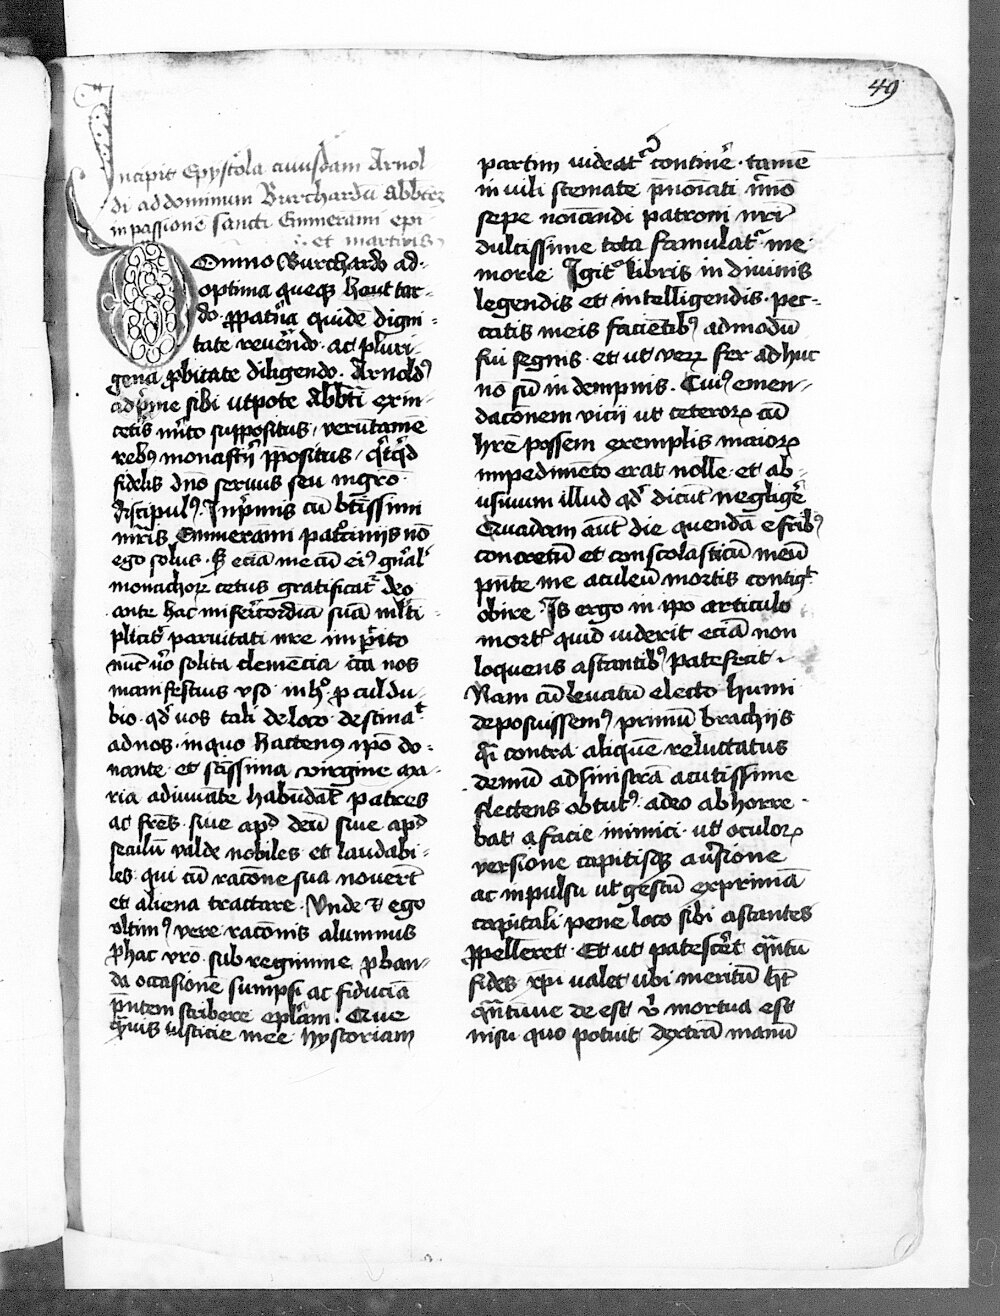 49
Incipit Epystola cuiusdam Arnol
di ad dominum Burchardū Abbatē
in passionē sancti Emmerami epi
et martiris
Domno Burchardo ad
optima queqꝫ haut tar-
do ꝓpatīa quidē digni-
tate reuerēdo ac pluri-
gena ꝓbitate diligendo. Arnoldꝰ
adprime sibi utpote Abbati exin-
cetis mito suppositus, verūtamē
rebꝰ monastīj ppositus, qitqid
fidelis dno seruus seu mgro
discipulꝰ. Inprimis cū btissimi
mris Emmerami patrocinijs nō
ego solus. Sꝫ eciā me cū eiꝰ gnali
monachorꝝ cetus gratificatr deo
ante hac misericordiā suā mlti-
pliciter paruitati nre impito
nūc vero solita clemēcia, ita nos
manifestius viso in hoc ꝓculdu-
bio qd uos tali de loco destinat
ad nos, in quo hactenus ipo do-
nante et scissima virgine ma-
ria adiuuāte habūdāt patres
ac frēs siue apd deū siue apd
seculū valde nobiles et laudabi-
les qui cū racōne sua nouert
et aliena tractare. Unde et ego
vltimꝰ vere racōnis alumnus
ꝑ hac vrō sub regimine ꝓban-
da occasionē sumpsi ac fiduciā
pntem scribere eplam. Que
quis rusticie mee hystoriam
partim uideatr continē. tamē
in uili stemate pnoiati immo
sepe noiandi patroni nri
dulcissime tota famulatr me
morie Igitr libris in diuinis
legendis et intelligendis. pec-
catis meis faciētibꝰ admodū
fui segnis. et ut verꝝ fer adhuc
nō sū indempnis. Cuiꝰ emen-
dacōnem vicij ut ceterorꝝ cū
hrē possem exemplis maiorꝝ
impedimēto erat nolle et ab-
usiuum illud qd dicūt negligē
Quadam aūt die quendā e fribꝰ
concretū et conscolasticū meū
pnte me aculeū mortis contigt
obire. Is ergo in ipo articulo
mortis quid uiderit eciā non
loquens astantibꝰ patefecit.
Nam cū leuatū electo humi
deposuissemꝰ primū brachijs
qsi contra aliquē reluctatus
demū ad sinistrā acutissime
flectens obtutꝰ. adeo abhorre-
bat a facie inimici. ut oculorꝝ
versione capitisqꝫ auersione
ac inpulsu ut gestū exprimā
capitali pene loco sibi astantes
ꝓpelleret. Et ut patesceret quātū
fides xpi ualet ubi meritū hꝫ
quātūue deest ubi mortua est
nisu quo potuit dextrā manū